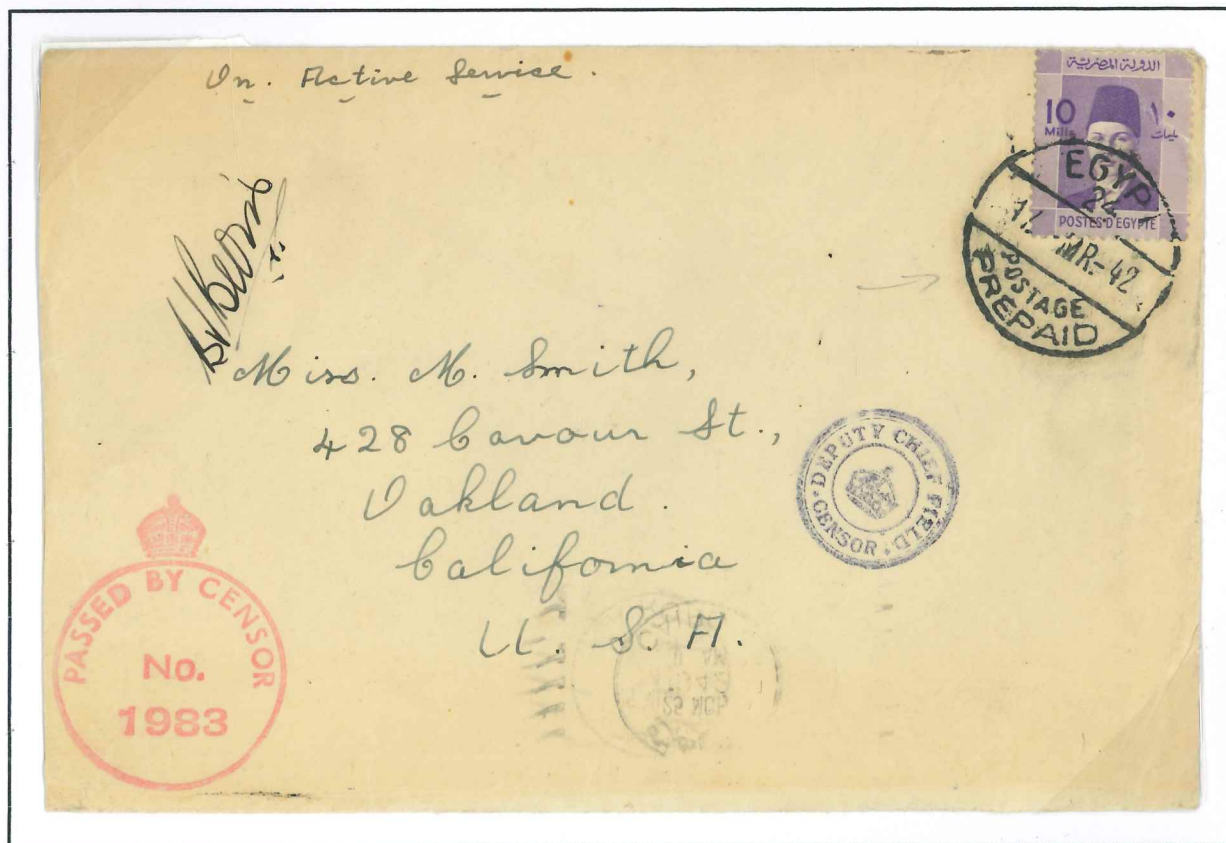 On. Active Service.
الدولة المصرية
10 ١٠
Mills مليمات
POSTES D'EGYPTE
EGYPT
24
MR-42
POSTAGE
PREPAID
Miss. M. Smith,
428 Cavour St.,
Oakland.
California
U. S. A.
DEPUTY CHIEF FIELD
CENSOR
PASSED BY CENSOR
No.
1983